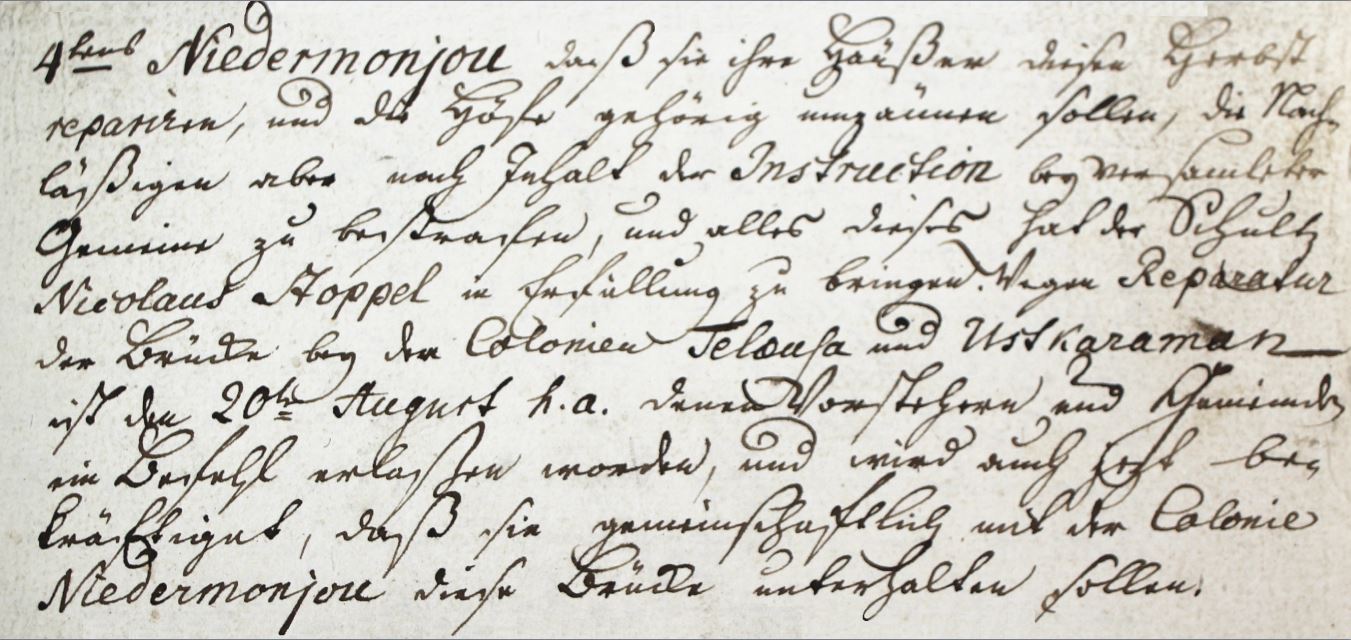 4tens Niedermonjou daß sie ihre Häußer diesen Herbst
repariren, und die Höfe gehörig umzäunen sollen, die Nach-
läßigen aber nach Inhalt der Instruction bey versamleter
Gemeine zu bestrafen, und alles dieses hat der Schultz
Nicolaus Stoppel in Erfüllung zu bringen. Wegen Reparatur
der Brücke bey den Colonien Telausa und Ustkaraman
ist den 20ten August h. a. denen Vorstehern und Gemeinden
ein Befehl erlaßen worden, und wird auch jezt be-
kräftiget, daß sie gemeinschaftlich mit der Colonie
Niedermonjou diese Brücke unterhalten sollen.